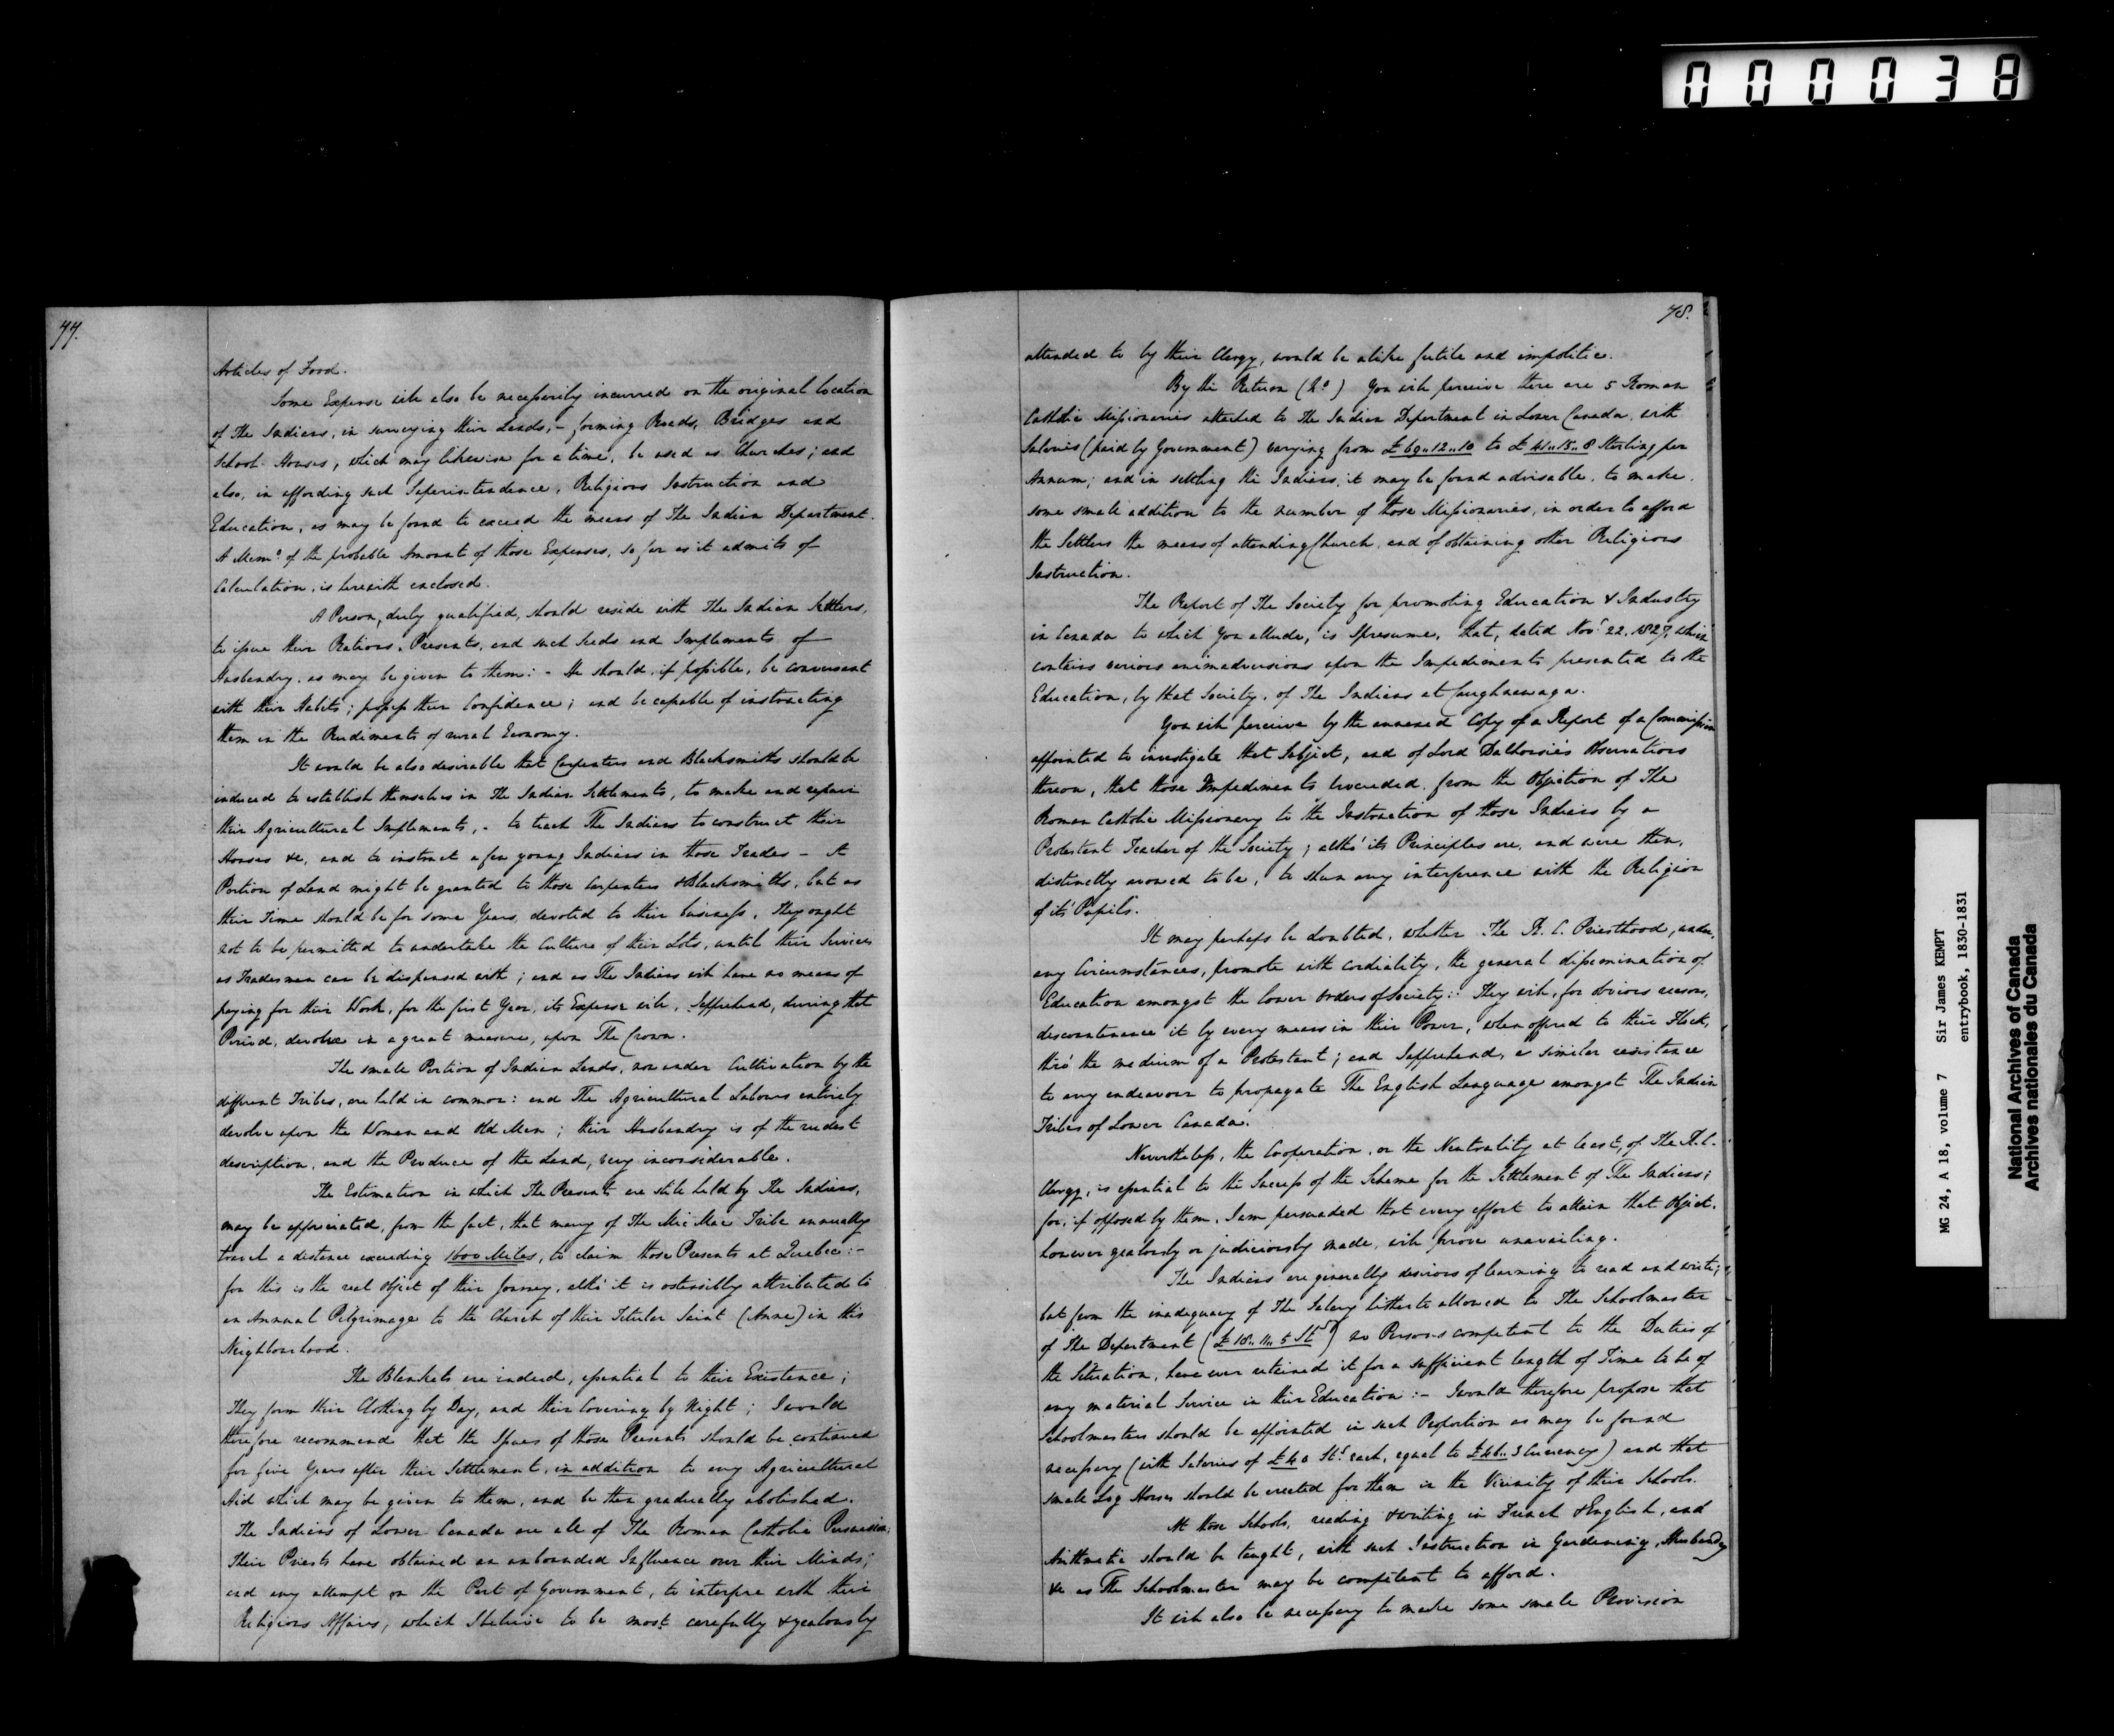 000038
77.
Articles of Food.
Some Expense will also be necessarily incurred on the original location
of The Indians, in surveying their Lands, - forming Roads, Bridges and
School-Houses, which may likewise for a time, be used as Churches; and
also, in affording such Superintendence, Religious Instruction and
Education, as may be found to exceed the means of The Indian Department.
A Memo. of the probable Amount of those Expenses, so far as it admits of
Calculation, is herewith enclosed.
A Person, duly qualified, should reside with The Indian Settlers,
to issue their Rations, Presents, and such Seeds and Implements of
Husbandry, as may be given to them: - He should, if possible, be conversant
with their Habits; possess their Confidence; and be capable of instructing
them in the Rudiments of rural Economy.
It would be also desirable that Carpenters and Blacksmiths should be
induced to establish themselves in The Indian Settlements, to make and repair
their Agricultural Implements, - to teach The Indians to construct their
Houses &c, and to instruct a few young Indians in those Trades - A
Portion of Land might be granted to those Carpenters & Blacksmiths, but as
their Time should be for some Years, devoted to their business, They ought
not to be permitted to undertake the Culture of their Lots, until their Services
as Tradesmen can be dispensed with; and as The Indians will have no means of
paying for their Work, for the first Year, its Expense will, I apprehend, during that
Period, devolve in a great measure, upon The Crown.
The small Portion of Indian Lands, now under Cultivation by the
different Tribes, are held in common: and The Agricultural Labours entirely
devolve upon the Women and Old Men; their Husbandry is of the rudest
description, and the Produce of the Land, very inconsiderable.
The Estimation in which The Presents are still held by The Indians,
may be appreciated, from the fact, that many of The Mic Mac Tribe annually
travel a distance exceeding 1600 Miles, to claim those Presents at Quebec: -
for this is the real Object of their Journey, altho' it is ostensibly attributed to
an Annual Pilgrimage to the Church of their Titular Saint (Anne) in this
Neighbourhood.
The Blankets are indeed, essential to their Existence;
They form their Clothing by Day, and their Covering by Night; I would
therefore recommend that the Issues of those Presents should be continued
for five Years after their Settlement, in addition to any Agricultural
Aid which may be given to them, and be then gradually abolished.
The Indians of Lower Canada are all of The Roman Catholic Persuasion;
Their Priests have obtained an unbounded Influence over their Minds;
and any attempt on the Part of Government, to interfere with their
Religious Affairs, which I believe to be most carefully & zealously
78.
attended to by their Clergy, would be alike futile and impolitic.
By the Return (No ) You will perceive there are 5 Roman
Catholic Missionaries attached to The Indian Department in Lower Canada, with
Salaries (paid by Government) varying from £69..12..10 to £41..15..8 Sterling per
Annum; and in settling the Indians, it may be found advisable, to make
some small addition to the number of those Missionaries, in order to afford
the Settlers the means of attending Church, and of obtaining other Religious
Instruction.
The Report of The Society for promoting Education & Industry
in Canada to which You allude, is I presume, that, dated Novr. 22, 1827, which
contains various animadversions upon the Impediments presented to the
Education, by that Society, of The Indians at Caughnawaga.
You will perceive by the annexed Copy of a Report of a Commission
appointed to investigate that Subject, and of Lord Dalhousie's Observations
thereon, that those Impediments proceeded from the Objection of The
Roman Catholic Missionary to the Instruction of those Indians by a
Protestant Teacher of the Society; altho' its Principles are, and were then,
distinctly avowed to be, to shun any interference with the Religion
of its' Pupils.
It may perhaps be doubted, whether The R. C. Priesthood, under
any Circumstances, promote with cordiality, the general dissemination of
Education amongst the lower Orders of Society: They will, for obvious reasons,
discountenance it by every means in their Power, when offered to their Flock,
thro' the medium of a Protestant; and I apprehend, a similar resistance
to any endeavour to propagate The English Language amongst The Indian
Tribes of Lower Canada.
Nevertheless, the Cooperation, or the Neutrality at least, of The R. C.
Clergy, is essential to the Success of the Scheme for the Settlement of The Indians;
for, if opposed by them, I am persuaded that every effort to attain that Object,
however zealously or judiciously made, will prove unavailing.
The Indians are generally desirous of learning to read and write;
but from the inadequacy of The Salary hitherto allowed to The Schoolmaster
of The Department (£18..11..5 Stg) no Persons competent to the Duties of
the Situation, have ever retained it for a sufficient length of Time to be of
any material Service in their Education: - I would therefore propose that
Schoolmasters should be appointed in such Proportion as may be found
necessary (with Salaries of £40 Stg. each, equal to £46..3 Currency) and that
small Log Houses should be erected for them in the Vicinity of their Schools.
At those Schools, reading & writing in French & English, and
Arithmetic should be taught, with such Instruction in Gardening, Husbandry
&c as The Schoolmaster may be competent to afford.
It will also be necessary to make some small Provision
MG 24, A 18, volume 7 Sir James KEMPT
entrybook, 1830-1831
National Archives of Canada
Archives nationales du Canada